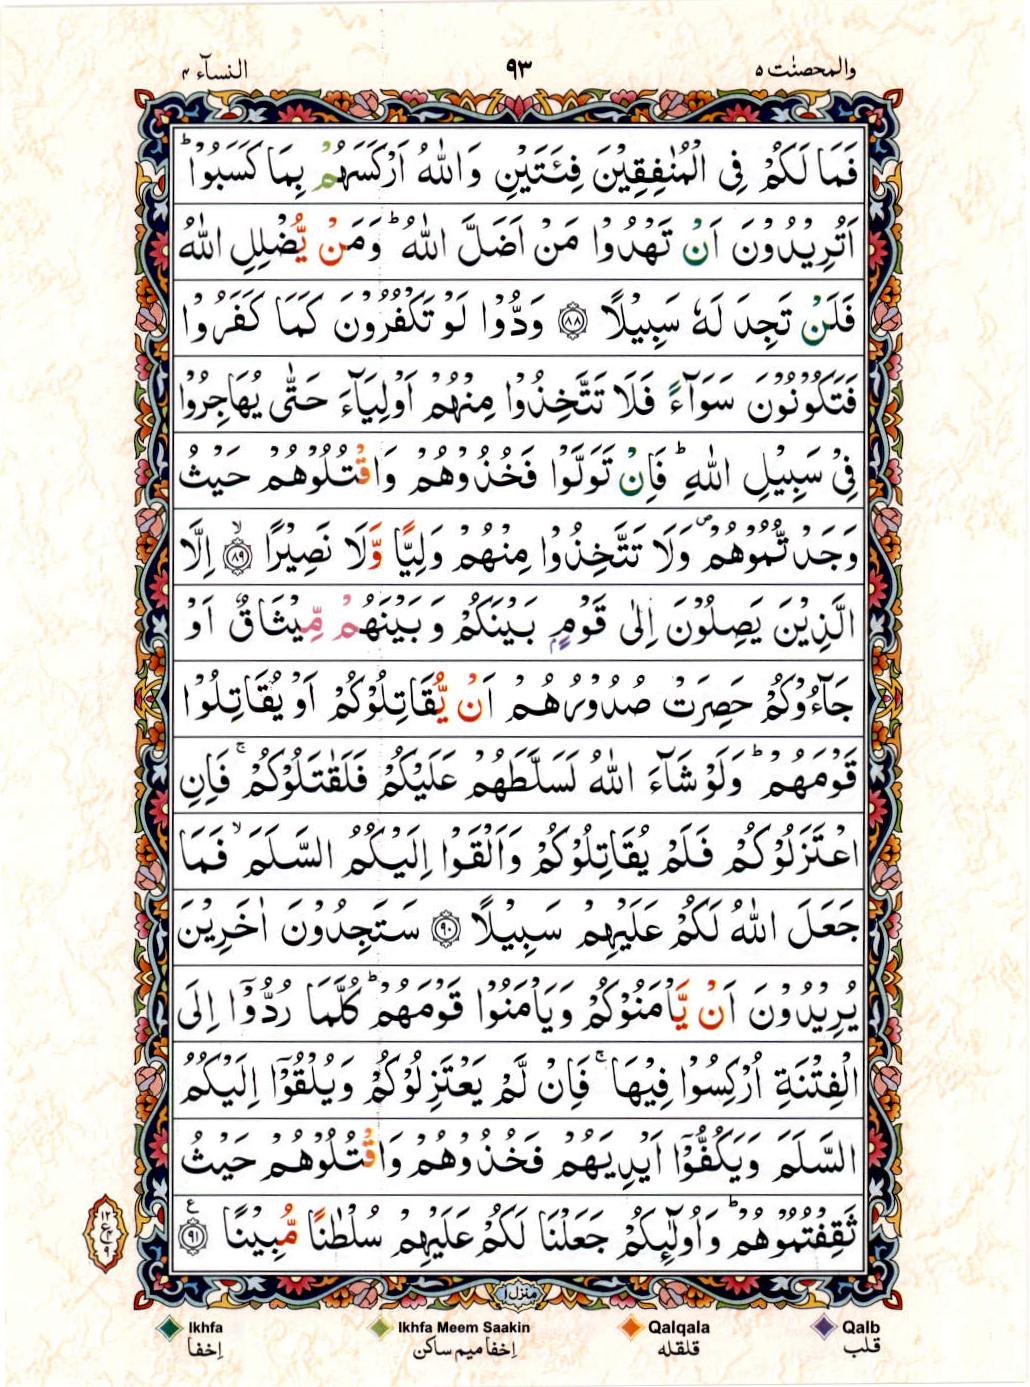 والمحصنٰت ۵
۹۳
النسآء ۴
فَمَا لَكُمْ فِی الْمُنٰفِقِیْنَ فِئَتَیْنِ وَاللّٰهُ اَرْكَسَهُمْ بِمَا كَسَبُوْا ؕ
اَتُرِیْدُوْنَ اَنْ تَهْدُوْا مَنْ اَضَلَّ اللّٰهُ ؕ وَمَنْ یُّضْلِلِ اللّٰهُ
فَلَنْ تَجِدَ لَهٗ سَبِیْلًا ﴿۸۸﴾ وَدُّوْا لَوْ تَكْفُرُوْنَ كَمَا كَفَرُوْا
فَتَكُوْنُوْنَ سَوَآءً فَلَا تَتَّخِذُوْا مِنْهُمْ اَوْلِیَآءَ حَتّٰی یُهَاجِرُوْا
فِیْ سَبِیْلِ اللّٰهِ ؕ فَاِنْ تَوَلَّوْا فَخُذُوْهُمْ وَاقْتُلُوْهُمْ حَیْثُ
وَجَدْتُّمُوْهُمْ ۪ وَلَا تَتَّخِذُوْا مِنْهُمْ وَلِیًّا وَّلَا نَصِیْرًا ﴿۸۹﴾ ۙ اِلَّا
الَّذِیْنَ یَصِلُوْنَ اِلٰی قَوْمٍۭ بَیْنَكُمْ وَبَیْنَهُمْ مِّیْثَاقٌ اَوْ
جَآءُوْكُمْ حَصِرَتْ صُدُوْرُهُمْ اَنْ یُّقَاتِلُوْكُمْ اَوْ یُقَاتِلُوْا
قَوْمَهُمْ ؕ وَلَوْ شَآءَ اللّٰهُ لَسَلَّطَهُمْ عَلَیْكُمْ فَلَقٰتَلُوْكُمْ ۚ فَاِنِ
اعْتَزَلُوْكُمْ فَلَمْ یُقَاتِلُوْكُمْ وَاَلْقَوْا اِلَیْكُمُ السَّلَمَ ۙ فَمَا
جَعَلَ اللّٰهُ لَكُمْ عَلَیْهِمْ سَبِیْلًا ﴿۹۰﴾ سَتَجِدُوْنَ اٰخَرِیْنَ
یُرِیْدُوْنَ اَنْ یَّاْمَنُوْكُمْ وَیَاْمَنُوْا قَوْمَهُمْ ؕ كُلَّمَا رُدُّوْۤا اِلَی
الْفِتْنَةِ اُرْكِسُوْا فِیْهَا ۚ فَاِنْ لَّمْ یَعْتَزِلُوْكُمْ وَیُلْقُوْۤا اِلَیْكُمُ
السَّلَمَ وَیَكُفُّوْۤا اَیْدِیَهُمْ فَخُذُوْهُمْ وَاقْتُلُوْهُمْ حَیْثُ
ثَقِفْتُمُوْهُمْ ؕ وَاُولٰٓئِكُمْ جَعَلْنَا لَكُمْ عَلَیْهِمْ سُلْطٰنًا مُّبِیْنًا ﴿۹۱﴾ ع
۱۲
ع۴
۹
منزل ۱
Ikhfa
Ikhfa Meem Saakin
Qalqala
Qalb
اِخفا
اِخفا میم ساکن
قلقله
قلب